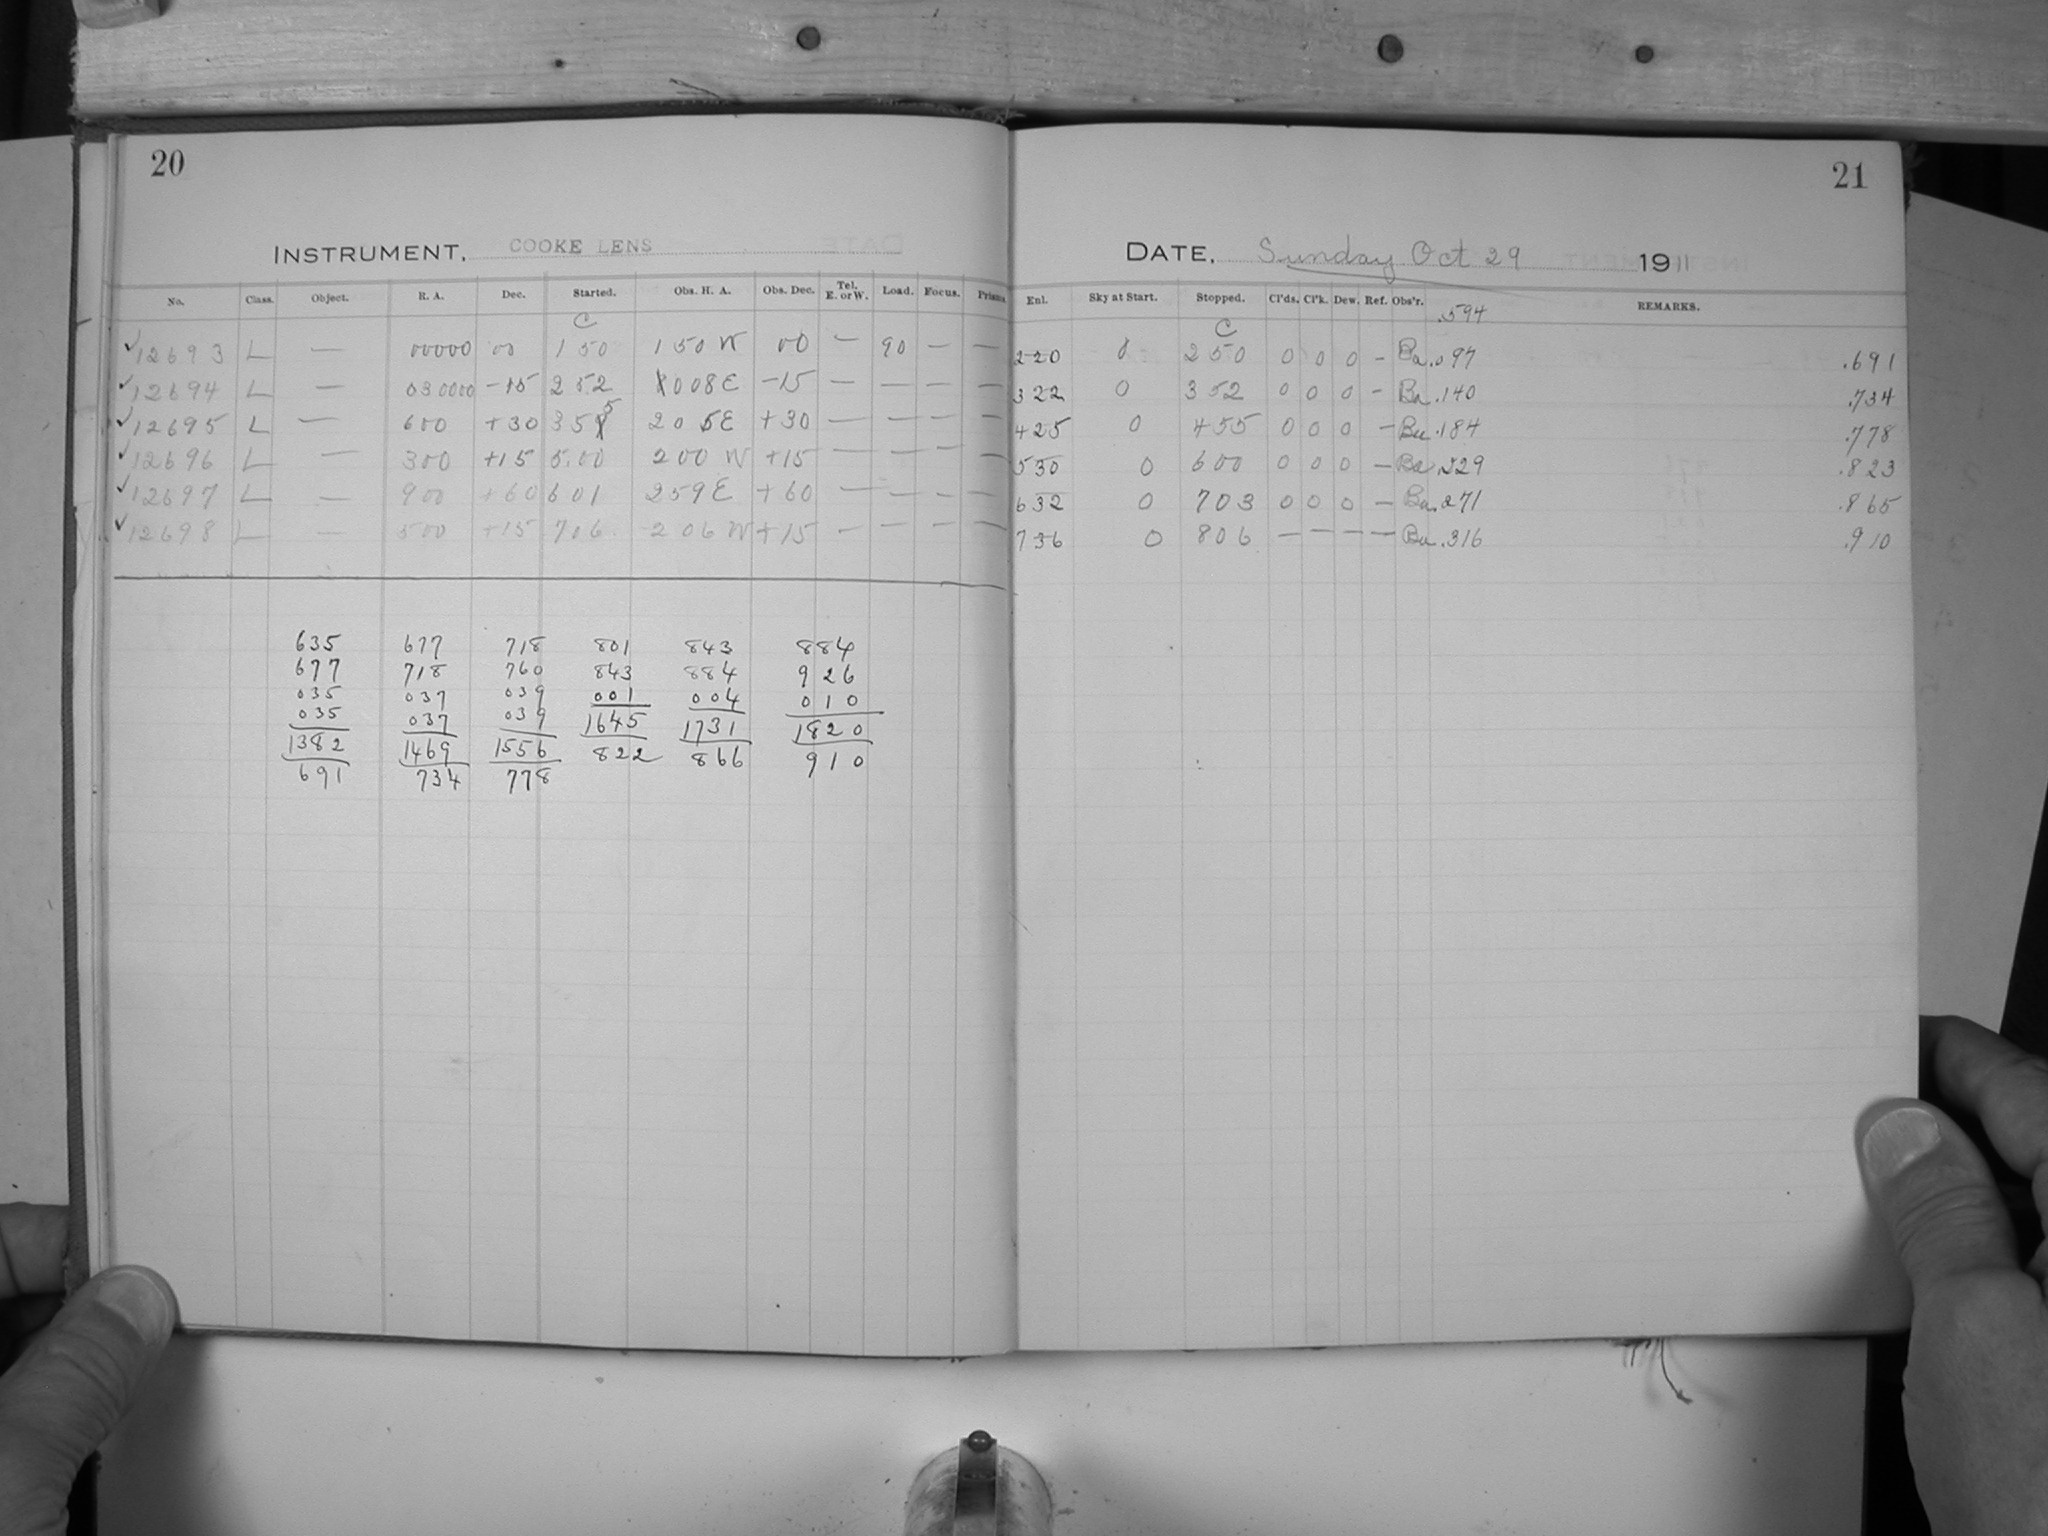 20
INSTRUMENT. COOKE LENS
No. Class. Object. R. A. Dec. Started. Obs. H. A. Obs. Dec. Tel. E. or W. Load. Focus. Prisms.
C
✓12693 L — 00000 00 150 150 W 00 — 90 — —
✓12694 L — 030000 -15 252 008 E -15 — — — —
✓12695 L — 600 +30 355 205 E +30 — — — —
✓12696 L — 300 +15 5.00 200 W +15 — — — —
✓12697 L — 900 +60 601 259 E +60 — — — —
✓12698 L — 500 +15 706 206 W +15 — — — —
635 677 718 801 843 884
677 718 760 843 884 926
035 037 039 001 004 010
035 037 039 1645 1731 1820
1382 1469 1556 822 866 910
691 734 778
21
DATE. Sunday Oct 29 1911
Enl. Sky at Start. Stopped. Cl'ds. Cl'k. Dew. Ref. Obs'r. REMARKS.
C .594
220 0 250 0 0 0 — Ba .097 .691
322 0 352 0 0 0 — Ba .140 .734
425 0 455 0 0 0 — Ba .184 .778
530 0 600 0 0 0 — Ba .229 .823
632 0 703 0 0 0 — Ba .271 .865
736 0 806 — — — — Ba .316 .910